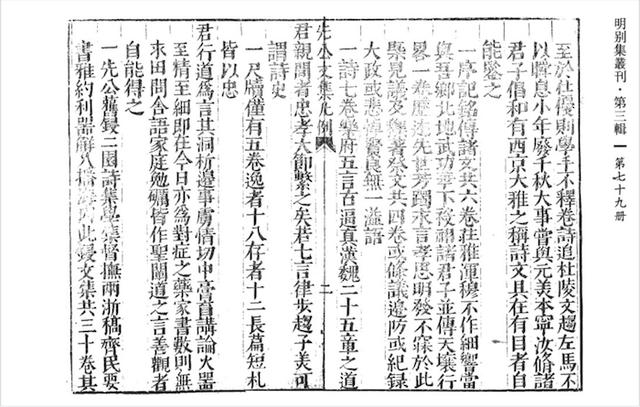 明别集叢刊·第三輯 第七十九册
至於仕優則學手不釋卷詩追杜陵文趨左馬不
以曠息小年廢千秋大事嘗與元美本寧汝脩諸
君子倡和有西京大雅之稱詩文具在有目者自
能鑒之
一序記銘傳諸文共六卷莊雅渾穆不作細響當
與吾鄉北地武功華下諸君子並傳天壤行
畧一卷歷述先世芳躅永言孝思明發不寐於此
槩見議及著祭文共四卷或條議邊防或紀録
大政或悲悼賢良無一溢語
一詩七卷樂府五言古逼真漢魏二十五章之道
先公文集凡例 二
君親聞者忠孝大節繫之矣若七言律步趨子美可
謂詩史
一尺牘僅有五卷逸者十八存者十二長篇短札
皆以忠
君行道為言其洞析邊事虜情切中膏肓講論火器
至精至細即在今日亦為對症之藥家書數則無
求田問舍語家庭勉礪皆作聖闡道之言善觀者
自能得之
一先公舊鋟二園詩集學集督撫兩浙稿齊民要
書雅約利器解八此鋟文集共三十卷其